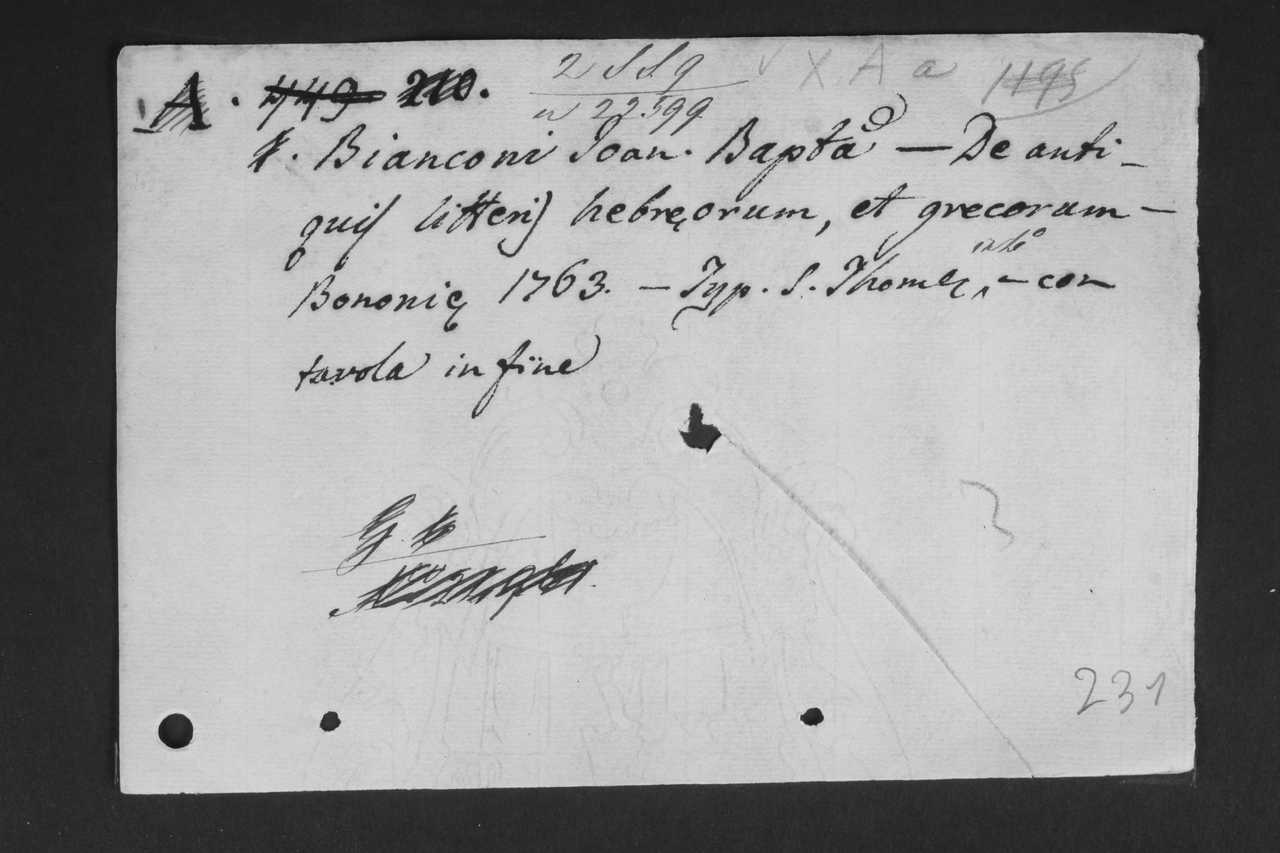 A. 749 210. 2 S S 9 X A a 1195
n 22599
Bianconi Joan. Bapta — De anti-
quis litteris hebręorum, et grecorum —
Bononię 1763. — Typ. S. Thomę — con
tavola in fine
231